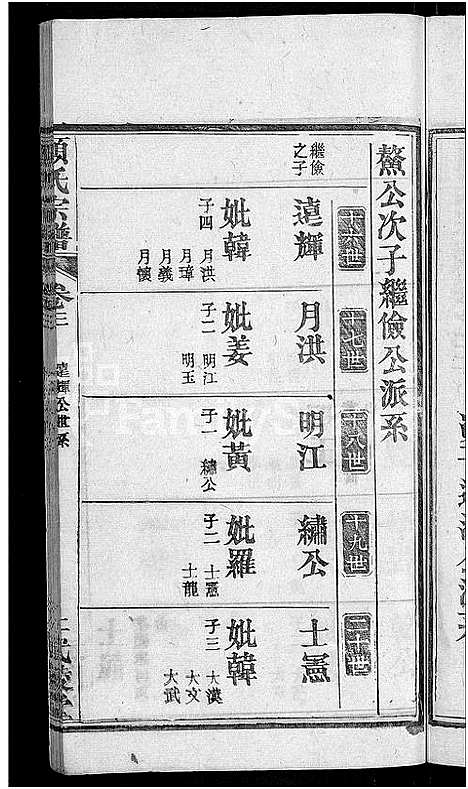 鰲公次子繼儉公派系
十六世
十七世
十八世
十九世
二十世
繼儉之子
達輝
妣韓
子四
月洪
月瑋
月義
月懷
月洪
妣姜
子二
明江
明玉
明江
妣黃
子一
繡公
繡公
妣羅
子二
士憲
士龍
士憲
妣韓
子三
大漢
大文
大武
氏宗譜
卷三
達輝公世系